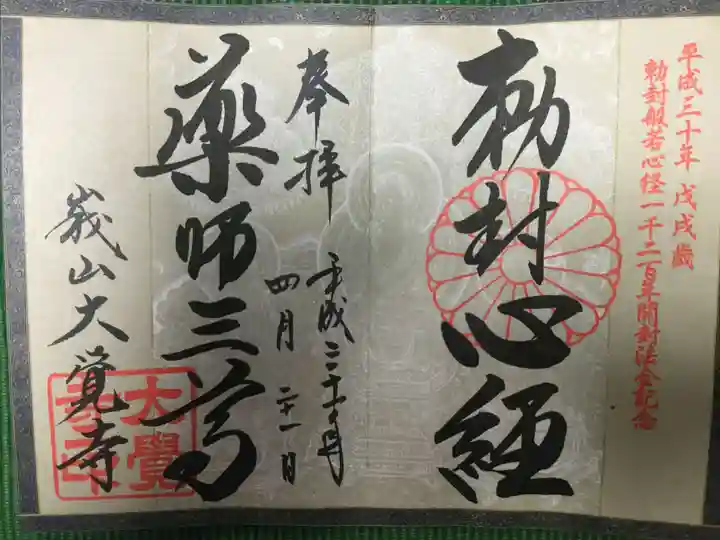 平成三十年 戊戌歳
勅封般若心経一千二百年開封法会記念
勅封心経
奉拝
平成三十年
四月二十一日
薬師三尊
嵯峨山大覚寺
大覺寺印